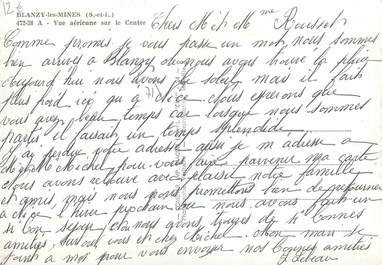 BLANZY-les-MINES (S.-et-L.)
472-28 A - Vue aérienne sur le Centre
Chers M et Mme Rousset
Comme promis je vous passe un mot nous sommes
bien arrivés à Blanzy ou nous avons trouvé la pluie
aujourd'hui nous avons le soleil mais il fait
plus froid ici qu'à Nice. Nous espérons que
vous avez beau temps car lorsque nous sommes
partis il faisait un temps splendide.
J'ai perdue votre adresse aussi je m adresse a
Michel pour vous faire parvenir ma carte
Nous avons retrouvé avec plaisir notre famille
et amis, mais nous nous promettons bien de retourner
à Nice l'hiver prochain car nous avons fait un
si bon séjour et nous avons trouvés de si bonnes
amitiés, surtout vous et chez Michel. Mon mari se
joint a moi pour vous envoyer nos bonnes amitiés